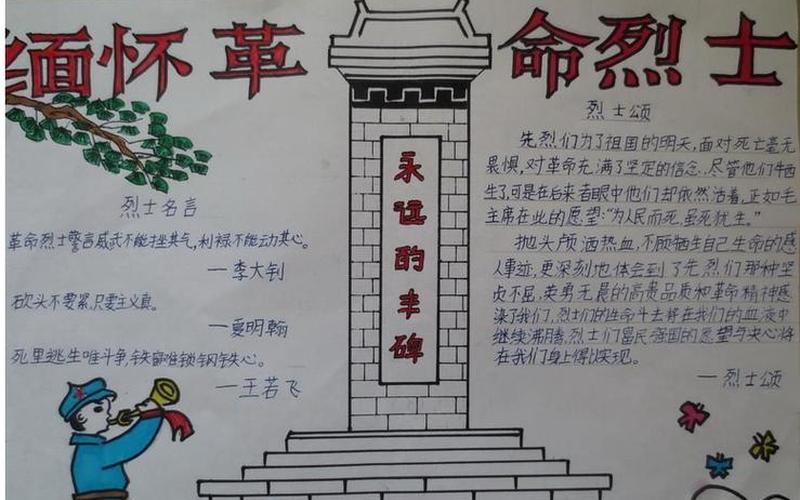 缅怀革命烈士
烈士名言
革命烈士警言威武不能挫其气,利禄不能动其心。
—李大钊
砍头不要累,只要主义真。
—夏明翰
死里逃生唯斗争,铁窗难锁钢铁心。
—王若飞
永远的丰碑
烈士颂
先烈们为了祖国的明天,面对死亡毫无
畏惧,对革命充满了坚定的信念.尽管他们牺
生了,可是在后来者眼中他们却依然活着,正如毛
主席在此的愿望:“为人民而死,虽死犹生。”
抛头颅洒热血,不顾牺生自己生命的感
人事迹,更深刻地体会到了先烈们那种坚
贞不屈,英勇无畏的高贵品质和革命精神感
染了我们,烈士们的生命斗去将在我们的血液中
继续沸腾,烈士们富民强国的愿望与决心将
在我们身上得以实现。
—烈士颂